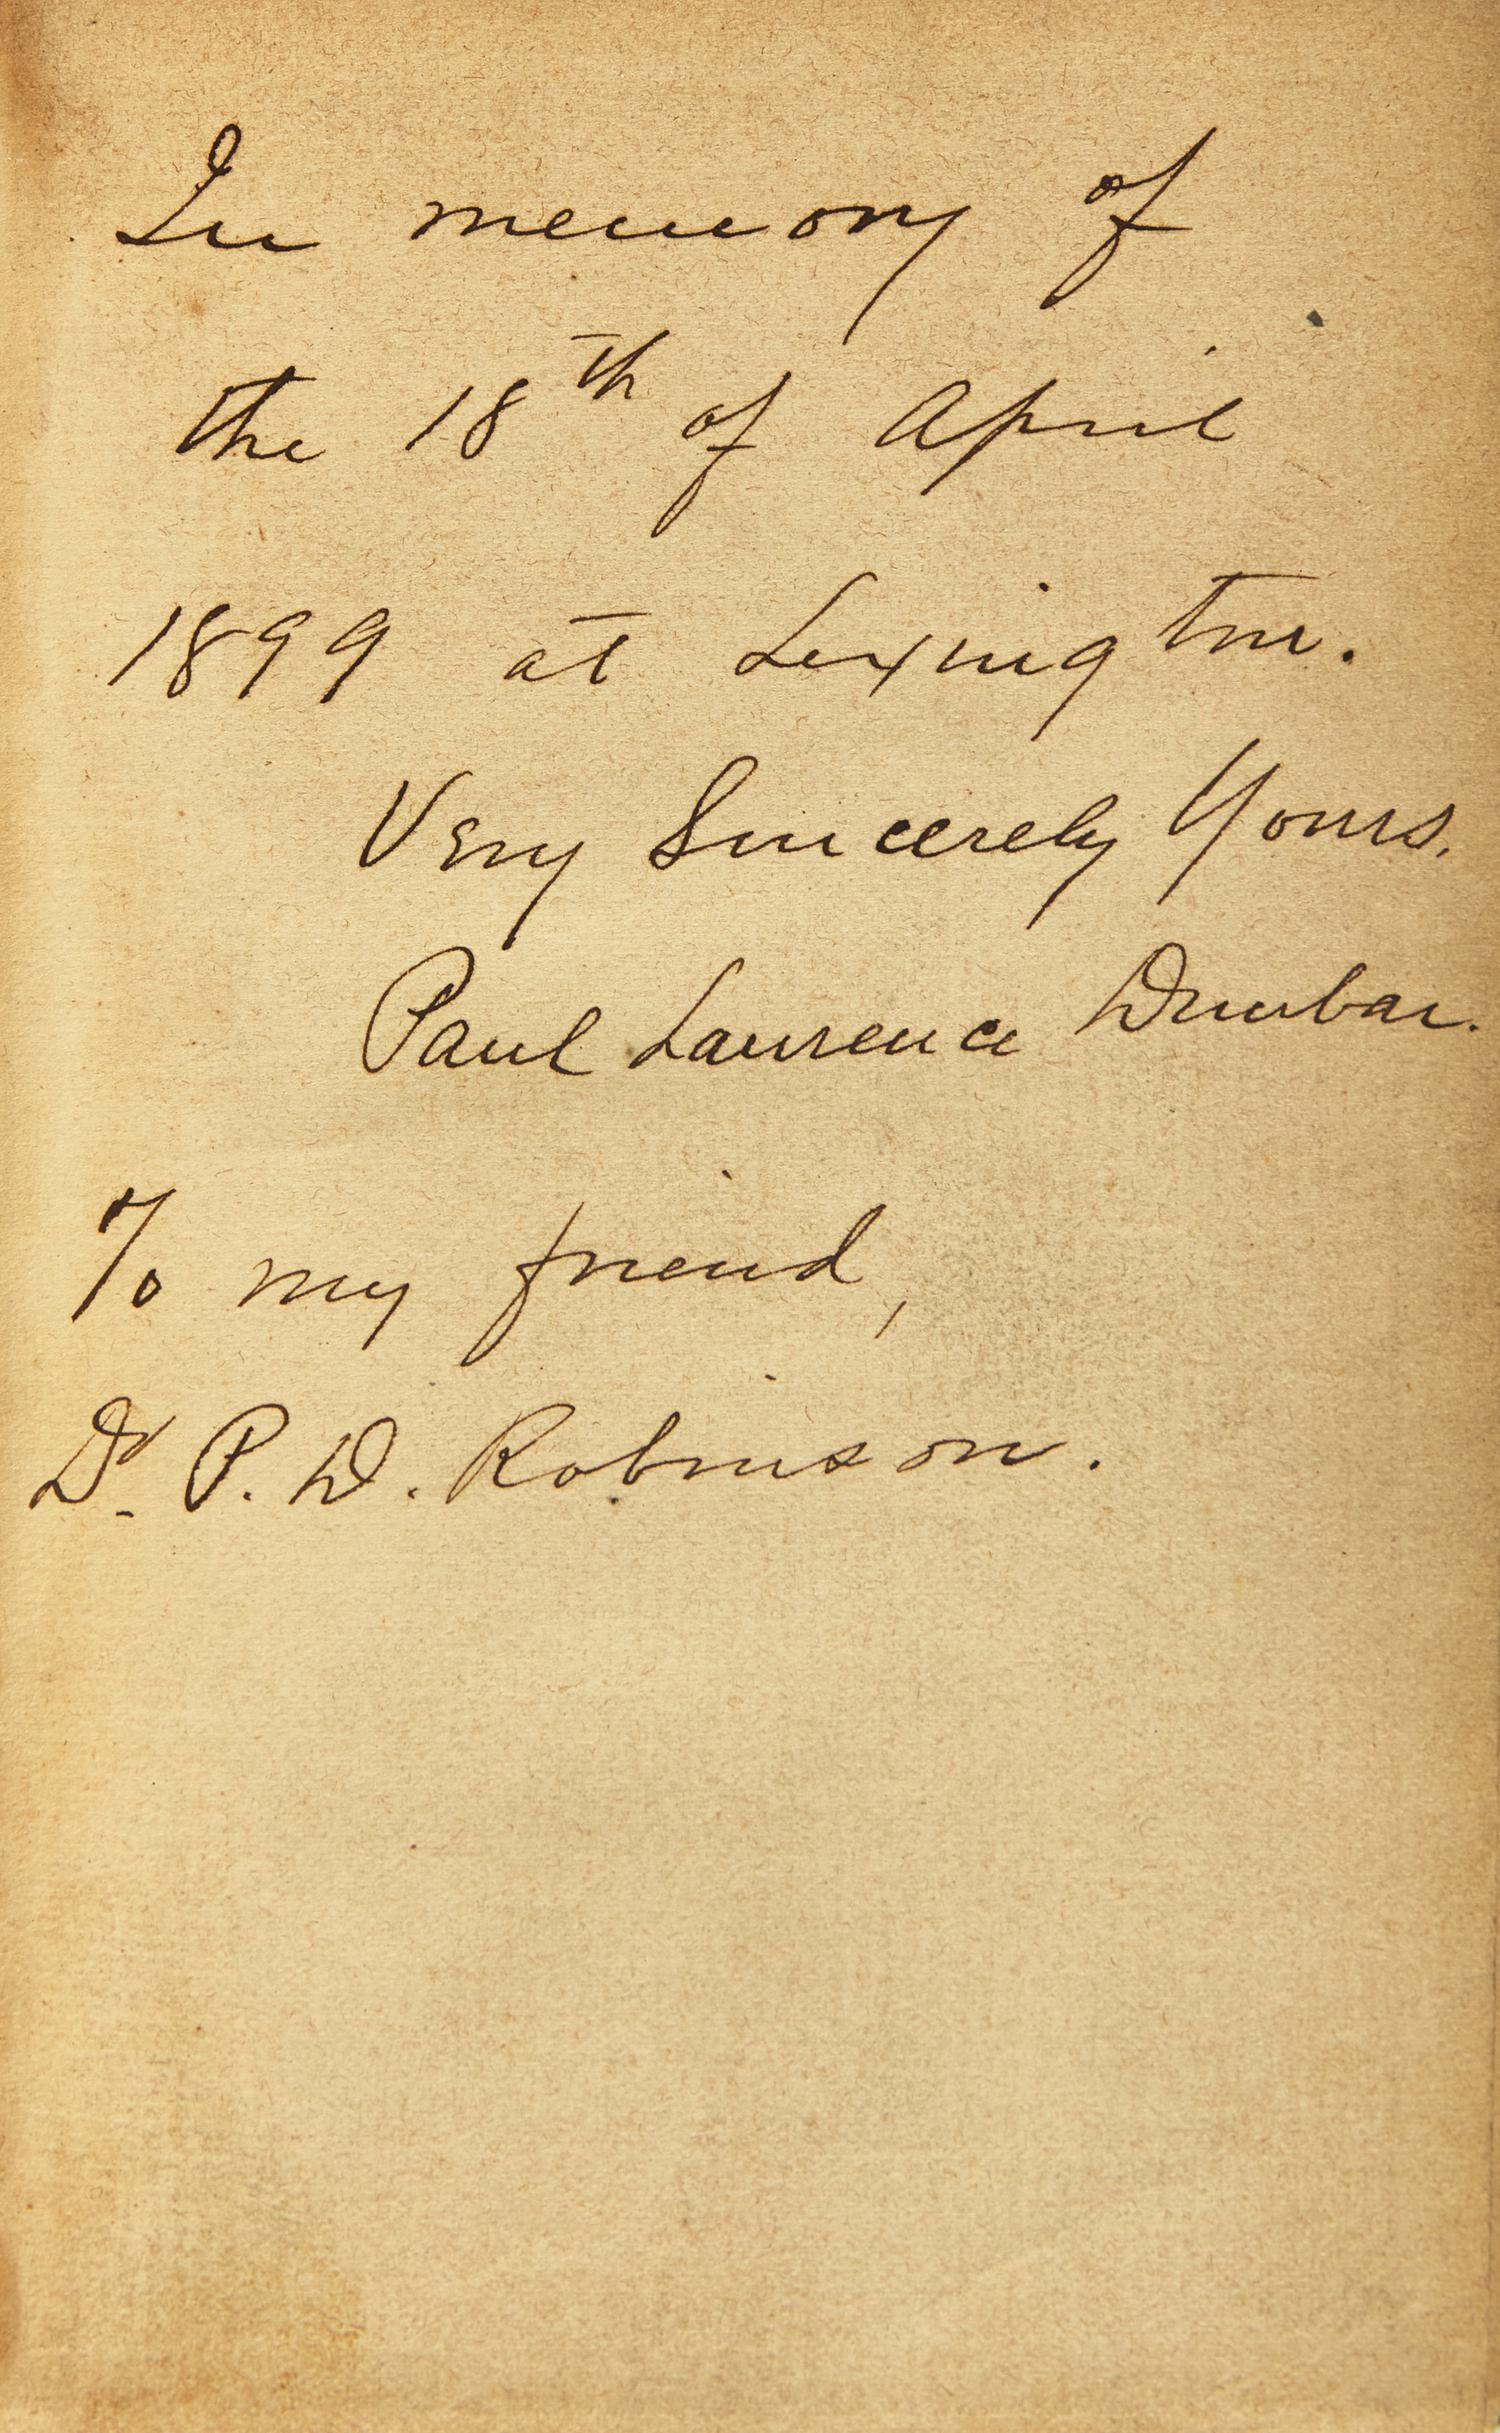 In memory of
the 18th of April
1899 at Lexington.
Very Sincerely Yours.
Paul Laurence Dunbar.
To my friend,
Dr. P. D. Robinson.